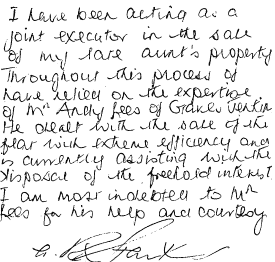 I have been acting as a
joint executor in the sale
of my late aunt's property
Throughout this process I
have relied on the expertise
of Mr Andy Lees of Graves
He dealt with the sale of the
flat with extreme efficiency and
is currently assisting with the
disposal of the freehold interest
I am most indebted to Mr
Lees for his help and courtesy